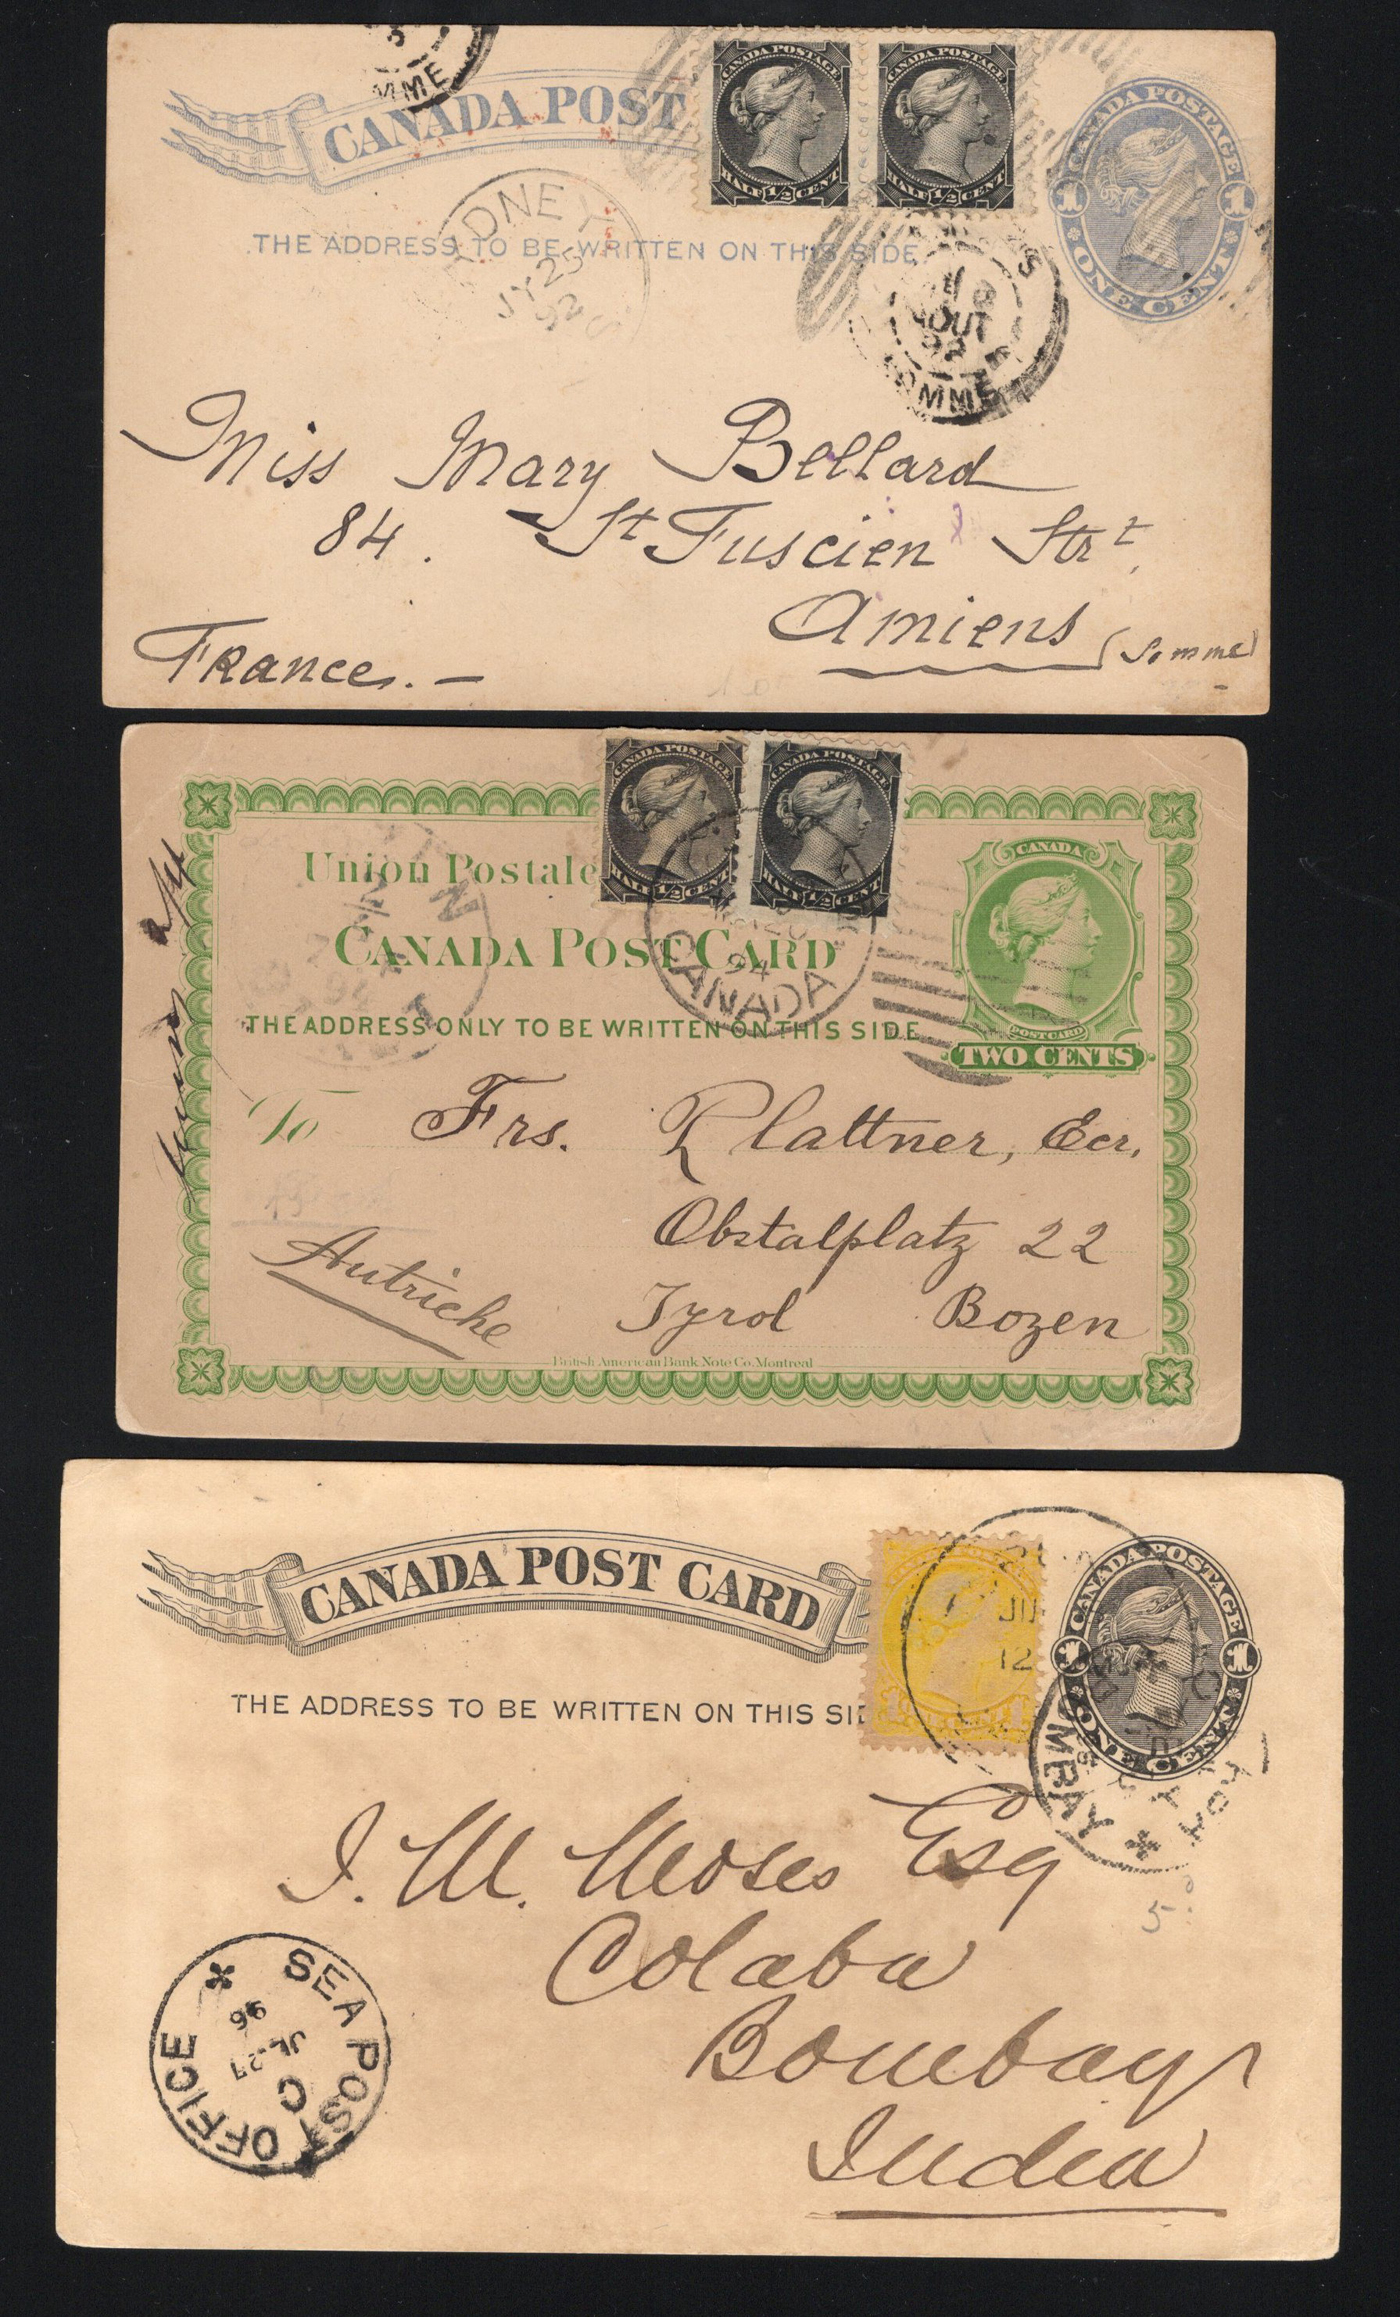 MME
CANADA POST
CANADA POSTAGE
HALF 1/2 CENT
CANADA POSTAGE
HALF 1/2 CENT
CANADA POSTAGE
1 1
ONE CENT
THE ADDRESS TO BE WRITTEN ON THIS SIDE
JY 25
92
AOUT
92
Miss Mary Bellard
84. St Fuscien Strt.
Amiens (Somme)
France. –
CANADA POSTAGE
HALF 1/2 CENT
CANADA POSTAGE
HALF 1/2 CENT
CANADA
POST CARD
TWO CENTS
Union Postale
CANADA POST CARD
94
CANADA
THE ADDRESS ONLY TO BE WRITTEN ON THIS SIDE
To Frs. Plattner, Ecr.
Obstalplatz 22
Autriche
Tyrol Bozen
British American Bank Note Co. Montreal
CANADA POST CARD
CANADA POSTAGE
1 1
ONE CENT
JU
12
THE ADDRESS TO BE WRITTEN ON THIS SID
BOMBAY
J. M. Moses Esq
5
Colaba
Bombay
India
SEA POST OFFICE
C
JL. 27
96